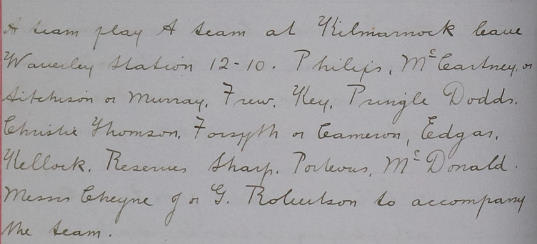 A team play A team at Kilmarnock leave
Waverley Station 12-10. Philips, McCartney or
Aitchison or Murray, Frew, Key, Pringle Dodds.
Christie Thomson, Forsyth or Cameron, Edgar,
Kellock. Reserves Sharp. Porteous, McDonald.
Messrs Cheyne J or G. Robertson to accompany
the team.